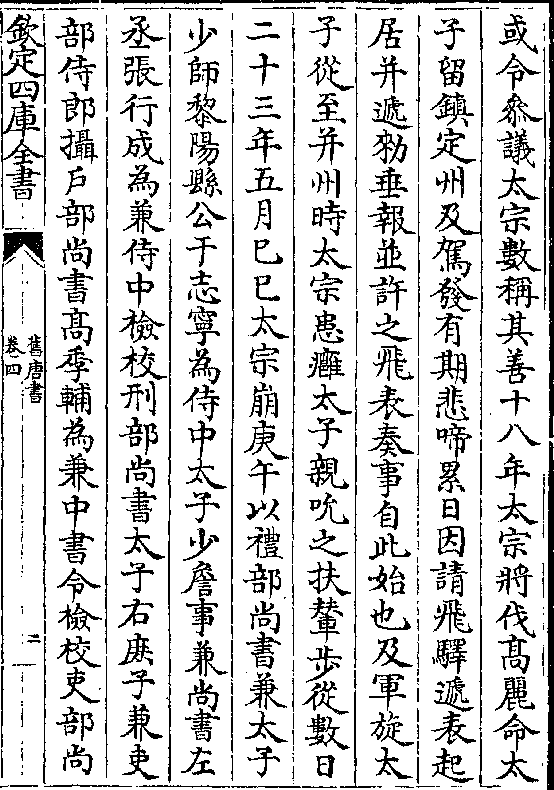 或令參議太宗數稱其善十八年太宗將伐高麗命太
子留鎮定州及駕發有期悲啼累日因請飛驛遞表起
居并遞勑垂報並許之飛表奏事自此始也及軍旋太
子從至并州時太宗患癰太子親吮之扶輦步從數日
二十三年五月己巳太宗崩庚午以禮部尚書兼太子
少師黎陽縣公于志寧為侍中太子少詹事兼尚書左
丞張行成為兼侍中檢校刑部尚書太子右庶子兼吏
部侍郎攝戶部尚書高季輔為兼中書令檢校吏部尚
欽定四庫全書
舊唐書
卷四
二